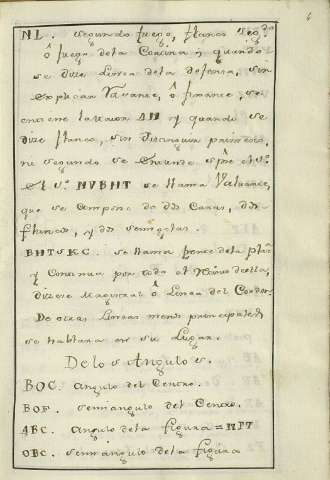 6
NL. Segundo fuego, flanco Seg.do
ô fuego dela Cortina y quando
se dize Linea dela defensa, sin
explicar fixante, ô
enciene la razon AH y quando se
dize flanco, sin distinguir primero,
ni segundo se entiende
El s.r MVBHT se llama Valuarte,
que se compone de dos Caras, dos
flancos, y dos semigolas.
BHTSKC. se llama frente dela plaza
y Continua por todo el
dizese Magistral ô Linea del Cordon.
De otras Lineas menos principales
se hablara en su Lugar.
Delos Angulos.
BOC. angulo del Centro.
BOF. semiangulo del Centro.
ABC. Angulo dela figura = MPT
OBC. semiangulo dela figura